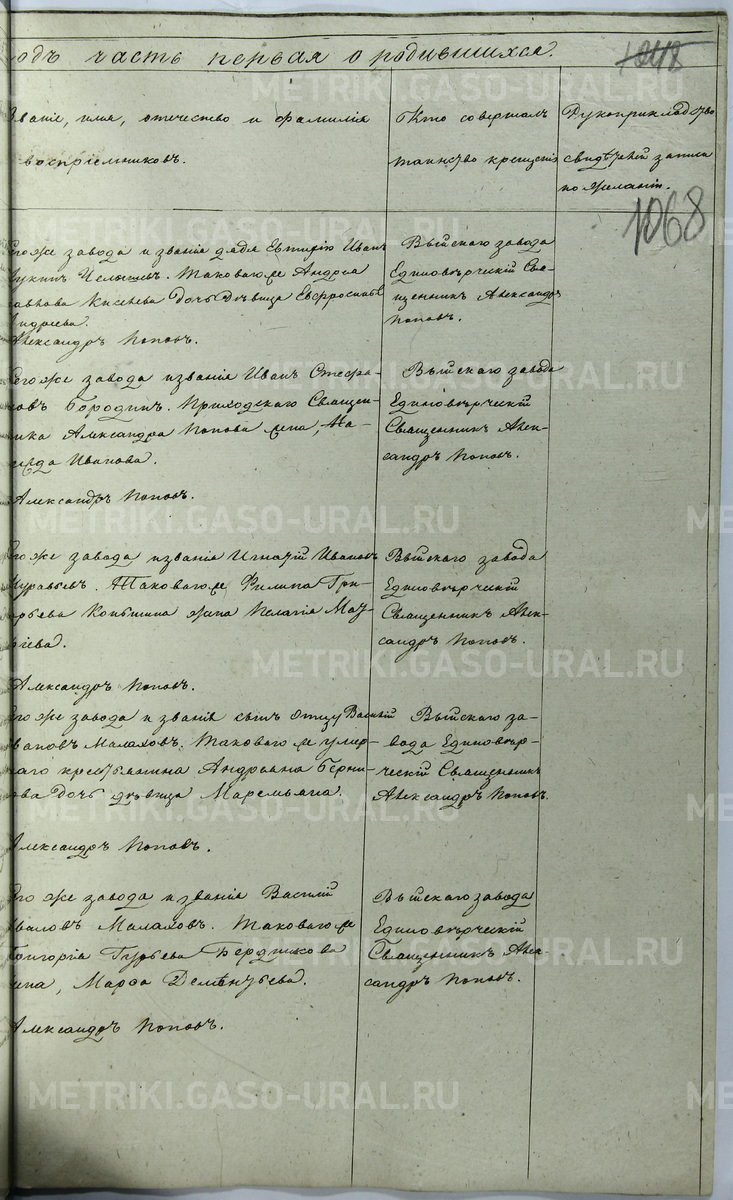 одъ часть первая о родившихся.
1048
Званіе, имя, отечество и фамилія
воспріемниковъ.
Кто совершалъ
таинство крещенія
Рукоприкладство
свидѣтелей записи
по желанію.
1068
того же завода и званія дядя Иванъ
Таковаго же Андрея
Дочь Дѣвица Евфросинія
Андреева.
Александръ Поповъ.
Выйскаго завода
Единовѣрческій Свя-
щенникъ Александръ
Поповъ.
того же завода и званія Иванъ Стефа-
новъ Бородинъ. Приходскаго Священ-
ника Александра Попова жена, На-
Иванова.
Александръ Поповъ.
Выйскаго завода
Единовѣрческій
Священникъ Алек-
сандръ Поповъ.
того же завода и званія Игнатій Ивановъ
Муравьевъ. Таковаго же Филипа Гри-
горьева Копышина жена Пелагія Мау-
Александръ Поповъ.
Выйскаго завода
Единовѣрческій
Священникъ Алек-
сандръ Поповъ.
того же завода и званія сынъ отцу Василій
Ивановъ Малаховъ. Таковаго же умер-
шаго крестьянина Андріана
Дочь дѣвица Маремьяна.
Александръ Поповъ.
Выйскаго за-
вода Единовѣр-
ческій Священникъ
Александръ Поповъ.
того же завода и званія Василій
Ивановъ Малаховъ. Таковаго же
Григорія Гурьева Бердникова
жена, Марфа Дементьева.
Александръ Поповъ.
Выйскаго завода
Единовѣрческій
Священникъ Алек-
сандръ Поповъ.
METRIKI.GASO-URAL.RU